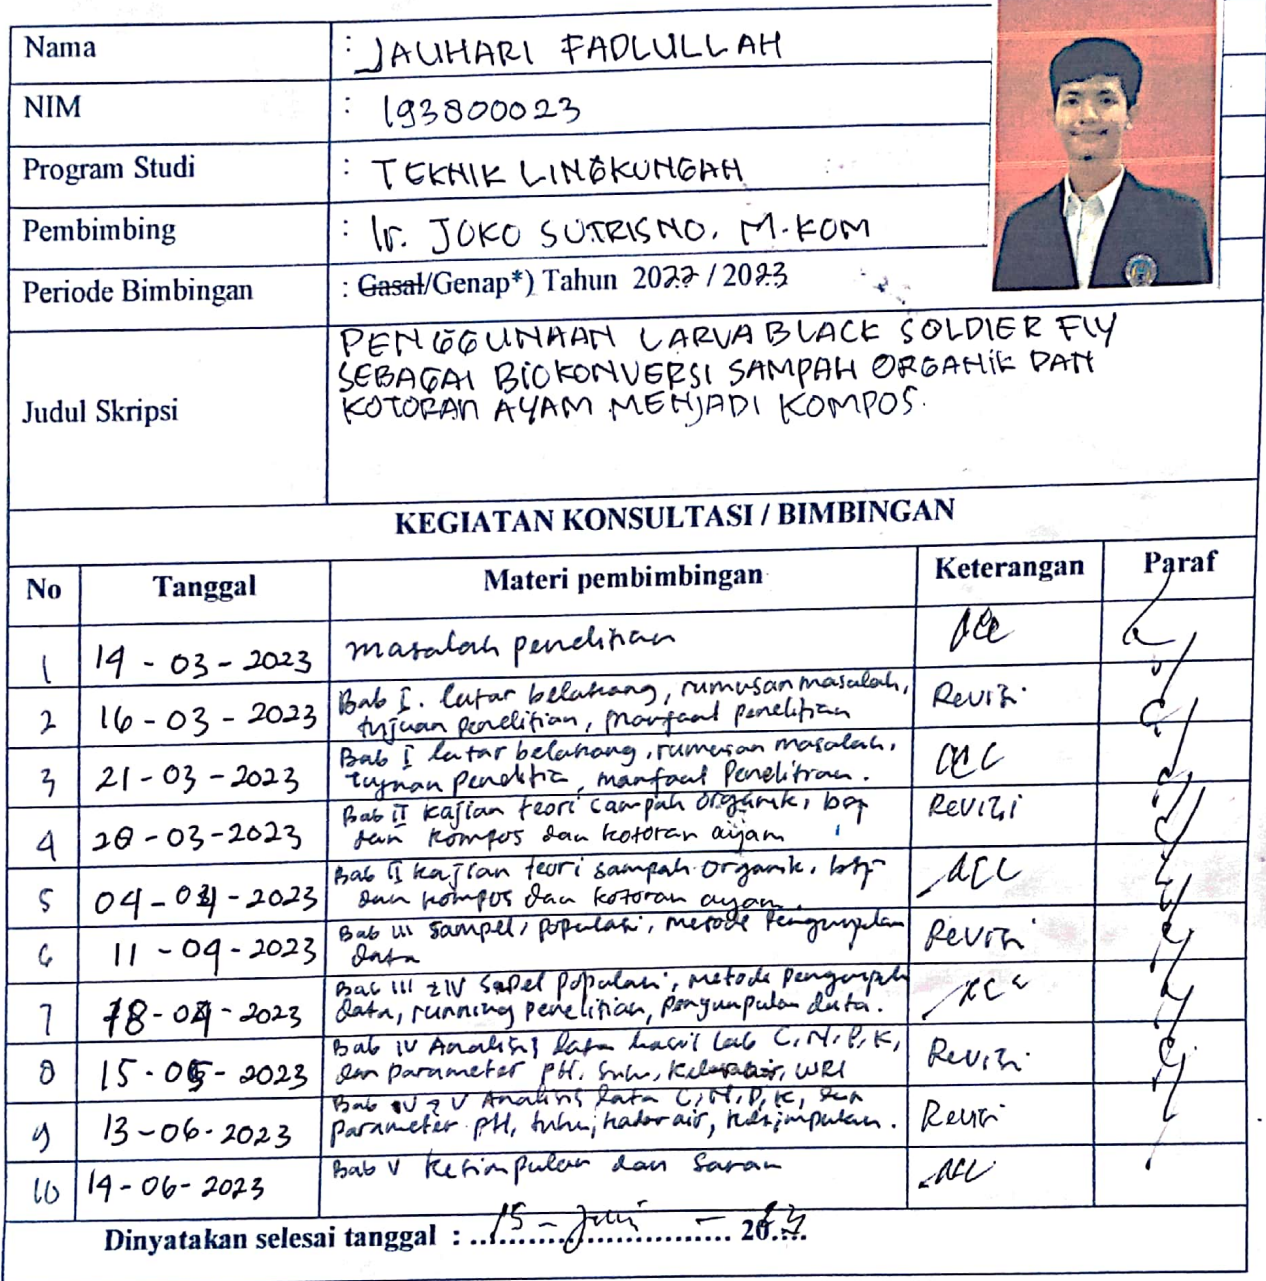 Nama : JAUHARI FADLULLAH
NIM : 193800023
Program Studi : TEKNIK LINGKUNGAN
Pembimbing : Ir. JOKO SUTRISNO. M.KOM
Periode Bimbingan : Gasal/Genap*) Tahun 2022 / 2023
Judul Skripsi
PENGGUNAAN LARVA BLACK SOLDIER FLY
SEBAGAI BIOKONVERSI SAMPAH ORGANIK DAN
KOTORAN AYAM MENJADI KOMPOS.
KEGIATAN KONSULTASI / BIMBINGAN
No Tanggal Materi pembimbingan Keterangan Paraf
1 14 - 03 - 2023 masalah penelitian ACC
2 16 - 03 - 2023 Bab I. latar belakang, rumusan masalah, Revisi
tujuan penelitian, manfaat penelitian
3 21 - 03 - 2023 Bab I latar belakang, rumusan masalah, ACC
tujuan penelitia, manfaat Penelitian.
4 28 - 03 - 2023 Bab II kajian teori sampah organik, bsf Revisi
dan kompos dan kotoran ayam
5 04 - 04 - 2023 Bab II kajian teori sampah organik, bsf ACC
dan kompos dan kotoran ayam.
6 11 - 04 - 2023 Bab III sampel, populasi, metode Pengumpulan Revisi
data
7 18 - 04 - 2023 Bab III & IV Sapel populasi, metode pengumpulan ACC
data, running penelitian, pengumpulan data.
8 15 - 05 - 2023 Bab IV Analisis data hasil lab C, N, P, K, Revisi
dan parameter pH, suhu, WRI
9 13 - 06 - 2023 Bab IV & V Analisis data C, N, P, K, dan Revisi
Parameter pH, suhu, kadar air, kesimpulan.
10 14 - 06 - 2023 Bab V Kesimpulan dan Saran ACC
Dinyatakan selesai tanggal : 15 - Juni - 2023